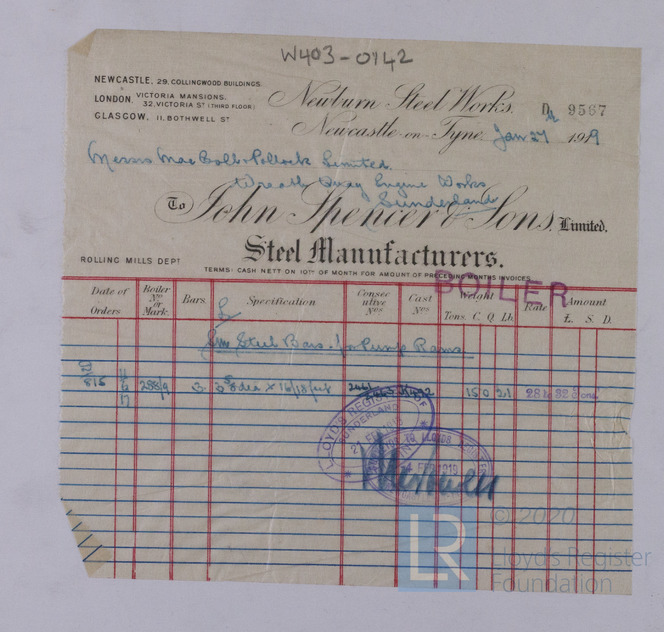 W403-0142
NEWCASTLE, 29, COLLINGWOOD BUILDINGS.
LONDON, VICTORIA MANSIONS,
32, VICTORIA ST (THIRD FLOOR)
GLASGOW, 11, BOTHWELL ST
Newburn Steel Works.
D 9567
Newcastle-on-Tyne. Jan 27 1919
Messrs MacColl & Pollock Limited.
Wreath Quay Engine Works
Sunderland
To John Spencer & Sons, Limited.
Steel Manufacturers.
ROLLING MILLS DEPT
TERMS: CASH NETT ON 10TH OF MONTH FOR AMOUNT OF PRECEDING MONTHS INVOICES.
BOILER
Date of Orders
Boiler Nos or Mark.
Bars.
Specification
Consecutive Nos
Cast Nos
Weight
Tons. C. Q. Lb.
Rate
Amount
£. S. D.
Steel Bars for Pump Rams
815 288/9 3 dia x 16/18 feet 15 0 21
LLOYD'S REGISTER OF
SUNDERLAND
FEB 1919
LLOYDS
FEB 1919
LR
© 2020
Lloyd's Register
Foundation